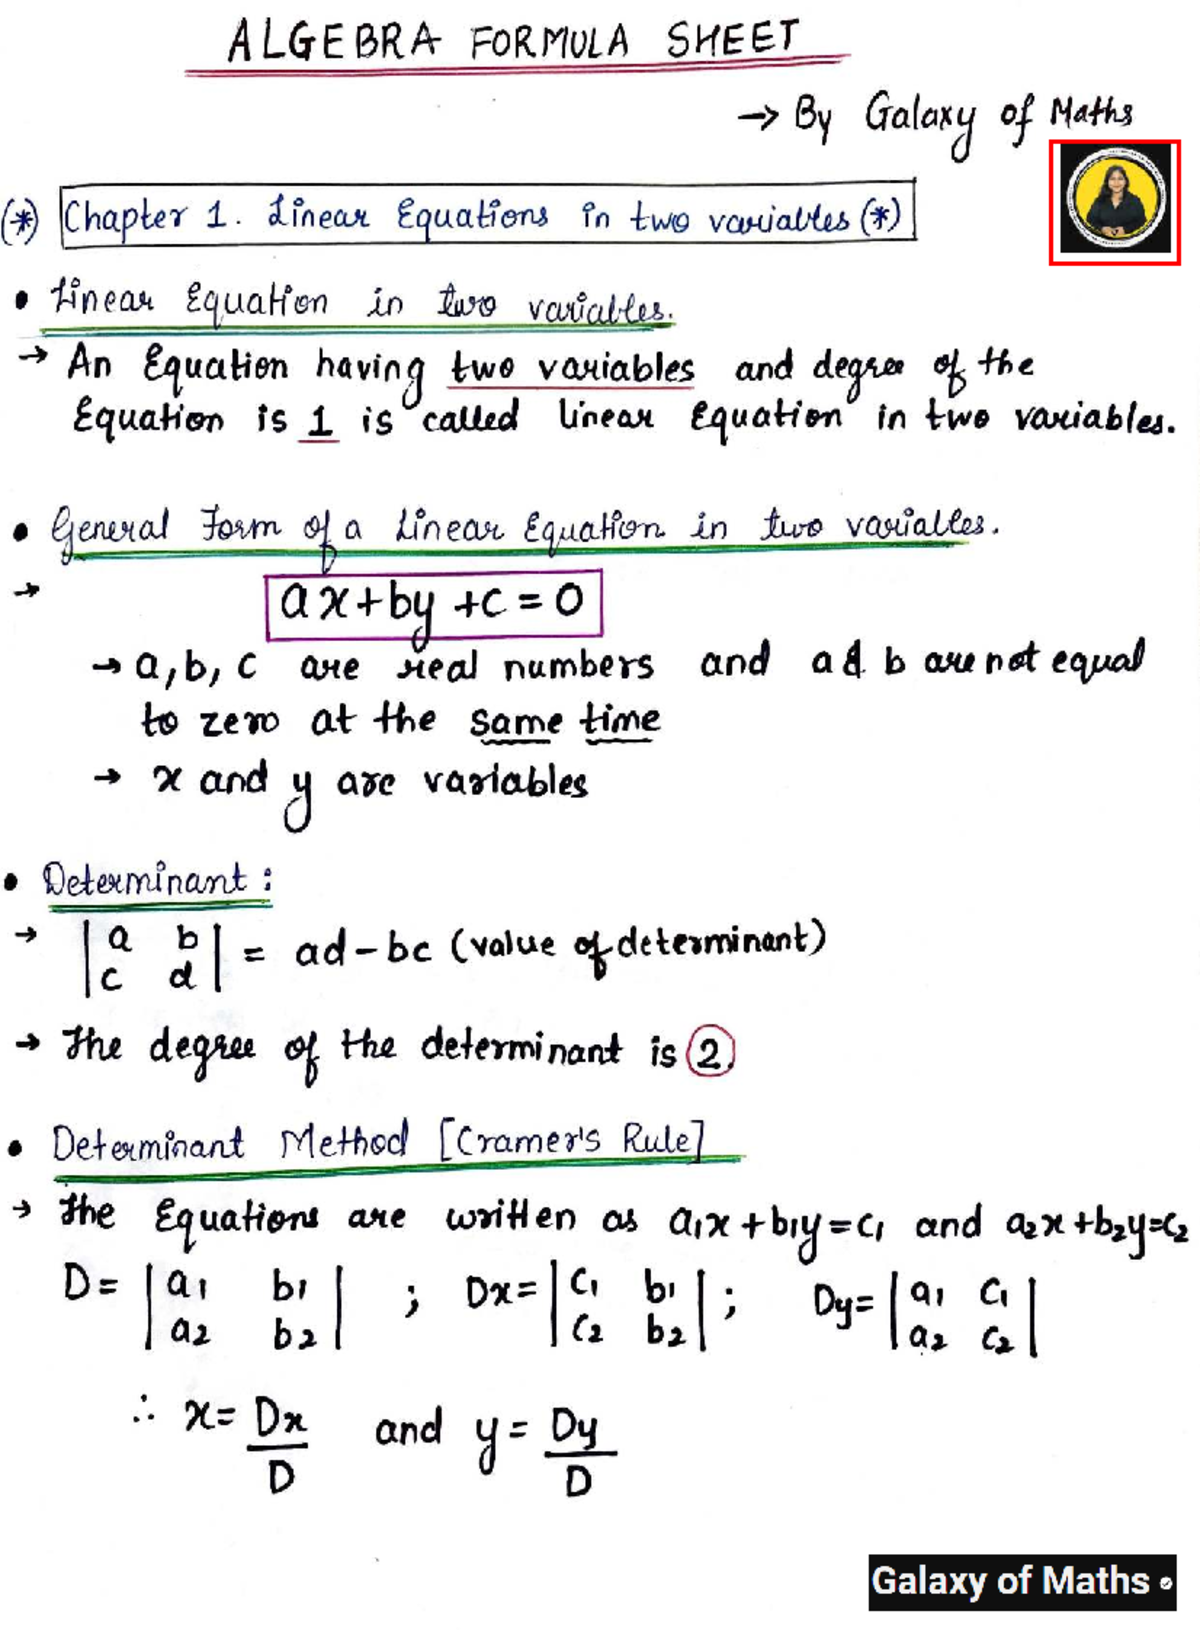 ALGEBRA FORMULA SHEET
→ By Galaxy of Maths
(*) Chapter 1. Linear Equations in two variables (*)
• Linear Equation in two variables.
→ An Equation having two variables and degree of the
Equation is 1 is called linear Equation in two variables.
• General Form of a Linear Equation in two variables.
→ ax+by+c=0
→ a, b, c are real numbers and a & b are not equal
to zero at the same time
→ x and y are variables
• Determinant :
→ |a b| = ad-bc (value of determinant)
|c d|
→ The degree of the determinant is 2.
• Determinant Method [Cramer's Rule]
→ The Equations are written as a₁x+b₁y=c₁ and a₂x+b₂y=c₂
D= |a₁ b₁| ; Dx= |c₁ b₁| ; Dy= |a₁ c₁|
|a₂ b₂| |c₂ b₂| |a₂ c₂|
∴ x= Dx/D and y= Dy/D
Galaxy of Maths